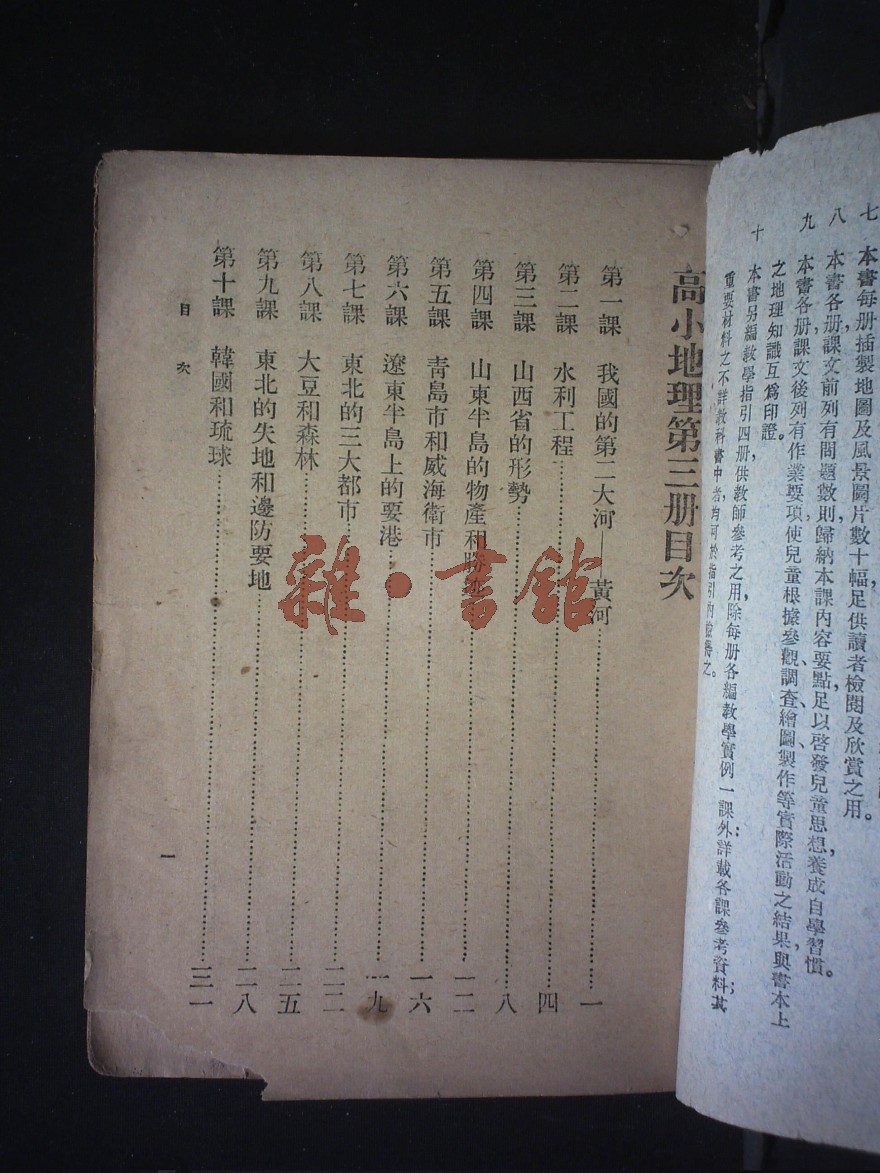 七　本書每册插製地圖及風景圖片數十幅，足供讀者檢閱及欣賞之用。
八　本書各册課文前列有問題數則歸納本課內容要點，足以啓發兒童思想，養成自學習慣。
九　本書各册課文後列有作業要項，使兒童根據參觀、調查、繪圖、製作等實際活動之結果，與書本上
之地理知識互爲印證。
十　本書另編教學指引四册，供教師參考之用，除每册各編教學實例一課外，詳載各課參考資料；其
重要材料之不詳教科書中者，均可於指引內檢得之。
高小地理第三册目次
第一課　我國的第二大河——黃河……一
第二課　水利工程……四
第三課　山西省的形勢……八
第四課　山東半島的物產和勝……一二
第五課　青島市和威海衛市……一六
第六課　遼東半島上的要港……一九
第七課　東北的三大都市……二二
第八課　大豆和森林……二五
第九課　東北的失地和邊防要地……二八
第十課　韓國和琉球……三一
目次
一
雜·書館